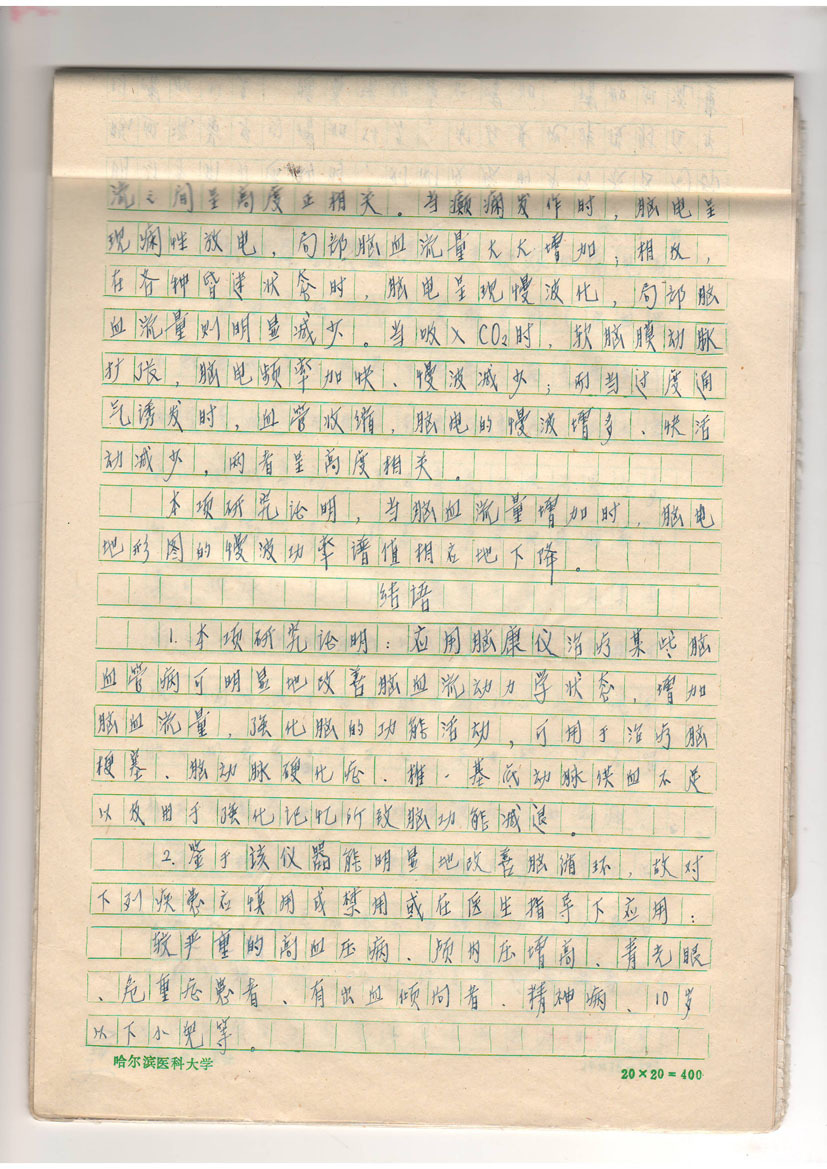 流之间呈高度正相关。当癫痫发作时，脑电呈
现痫性放电，局部脑血流量大大增加；相反，
在各种昏迷状态时，脑电呈现慢波化，局部脑
血流量则明显减少。当吸入CO₂时，软脑膜动脉
扩张，脑电频率加快、慢波减少；而当过度通
气诱发时，血管收缩，脑电的慢波增多、快活
动减少，两者呈高度相关。
本项研究证明，当脑血流量增加时，脑电
地形图的慢波功率谱值相应地下降。
结语
1.本项研究证明：应用脑康仪治疗某些脑
血管病可明显地改善脑血流动力学状态，增加
脑血流量，强化脑的功能活动，可用于治疗脑
梗塞、脑动脉硬化症、椎-基底动脉供血不足
以及用于强化记忆所致脑功能减退。
2.鉴于该仪器能明显地改善脑循环，故对
下列疾患应慎用或禁用或在医生指导下应用：
较严重的高血压病、颅内压增高、青光眼
、危重症患者、有出血倾向者、精神病、10岁
以下小儿等。
哈尔滨医科大学
20×20=400